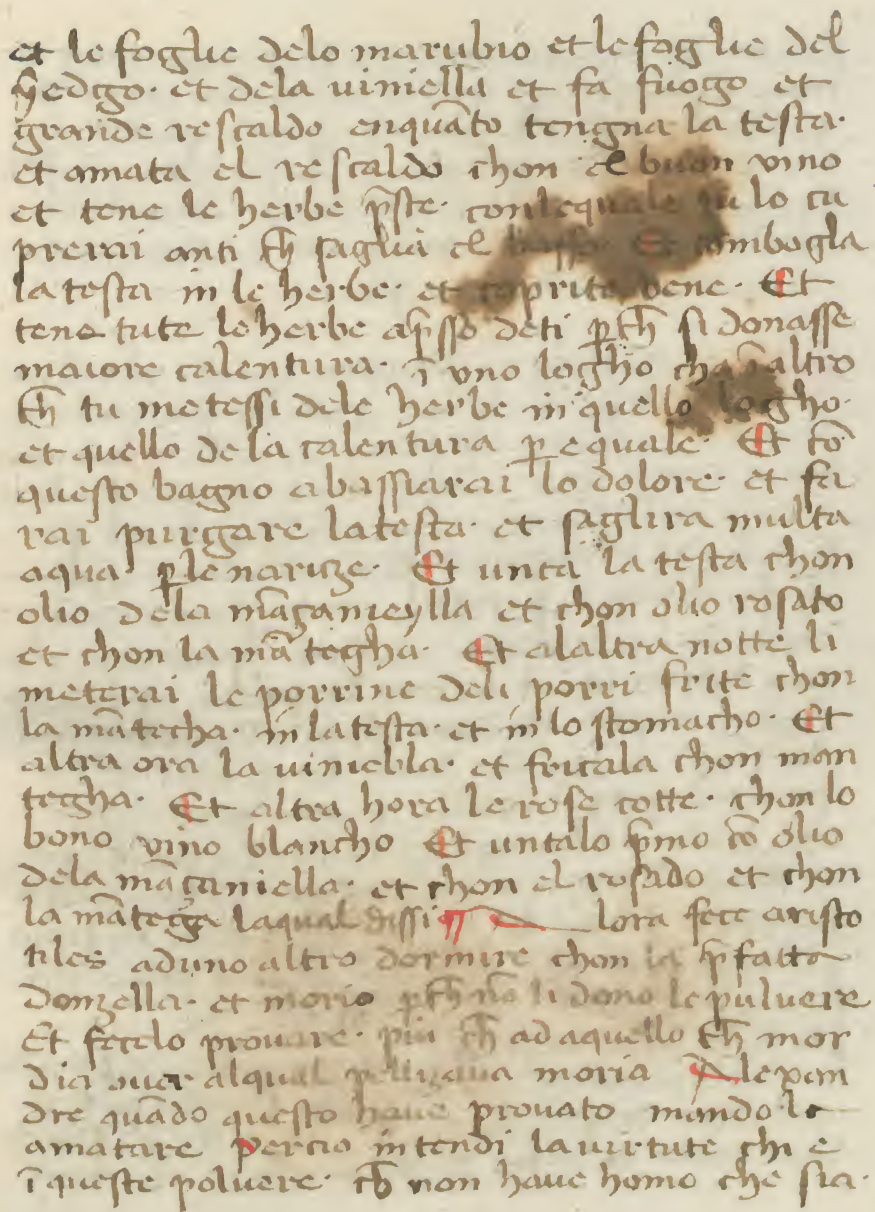 et le foglie delo marubio et le foglie del
yedgo. et dela uiniella et fa fuogo et
grande rescaldo enquāto tengna la testa.
et amata el rescaldo chon el buon vino
et tene le herbe p̄ste. conlequale tu lo cu
prerai anti ch̄ saglia el Et combogla
la testa in le herbe. et coprite bene. Et
tene tute le herbe ap̄sso deti ꝑch̄ si donasse
maiore calentura. ī uno logho cha ī altro
ch̄ tu metessi dele herbe in quello logho.
et quello de la calentura ꝑ equale. Et cō
questo bagno abassiarai lo dolore. et fa
rai purgare latesta. et saglira multa
aqua ꝑ le naritze. Et unta la testa chon
olio dela māzanieylla et chon olio rosato
et chon la mātegha. Et alaltra notte li
meterai le porrine deli porri frite chon
la mātecha. in latesta. et in lo stomacho. Et
altra ora la uiniebla. et fricala chon man
tegha. Et altra hora le rose cotte. chon lo
bono vino blancho Et untalo p̄mo cō olio
dela māçaniella. et chon el rosado et chon
la mātega laqual dissi ¶ Alora fece aristo
tiles aduno altro dormire chon la p̄fatta
donzella. et morio ꝑch̄ nō li dono le puluere
Et fecelo prouare. piu ch̄ ad aquello ch̄ mor
dia ouer alqual pellizaua moria Alexan
dre quādo questo haue prouato mandola
amatare Percio intendi la uirtute chi e
ī queste poluere. ch̄ non haue homo che sia.